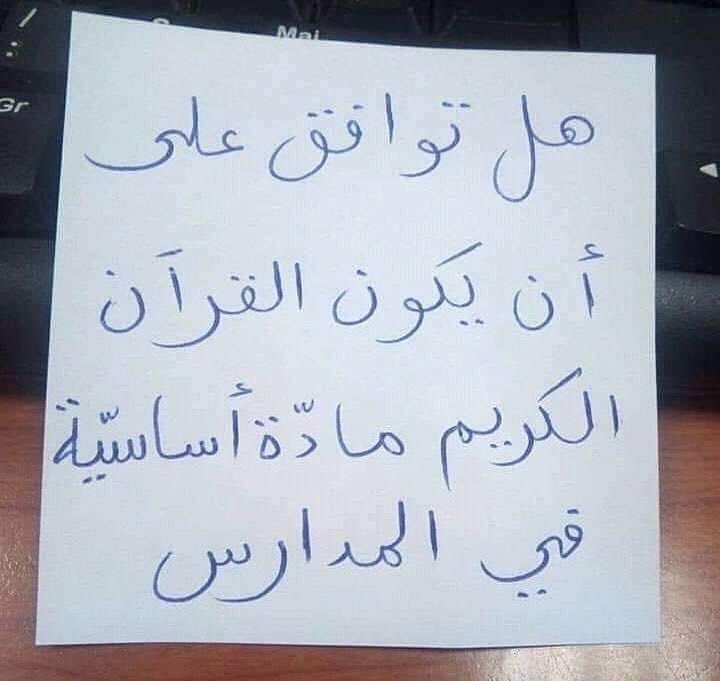 /
:
Maj
Gr
هل توافق على
أن يكون القرآن
الكريم مادّة أساسيّة
في المدارس